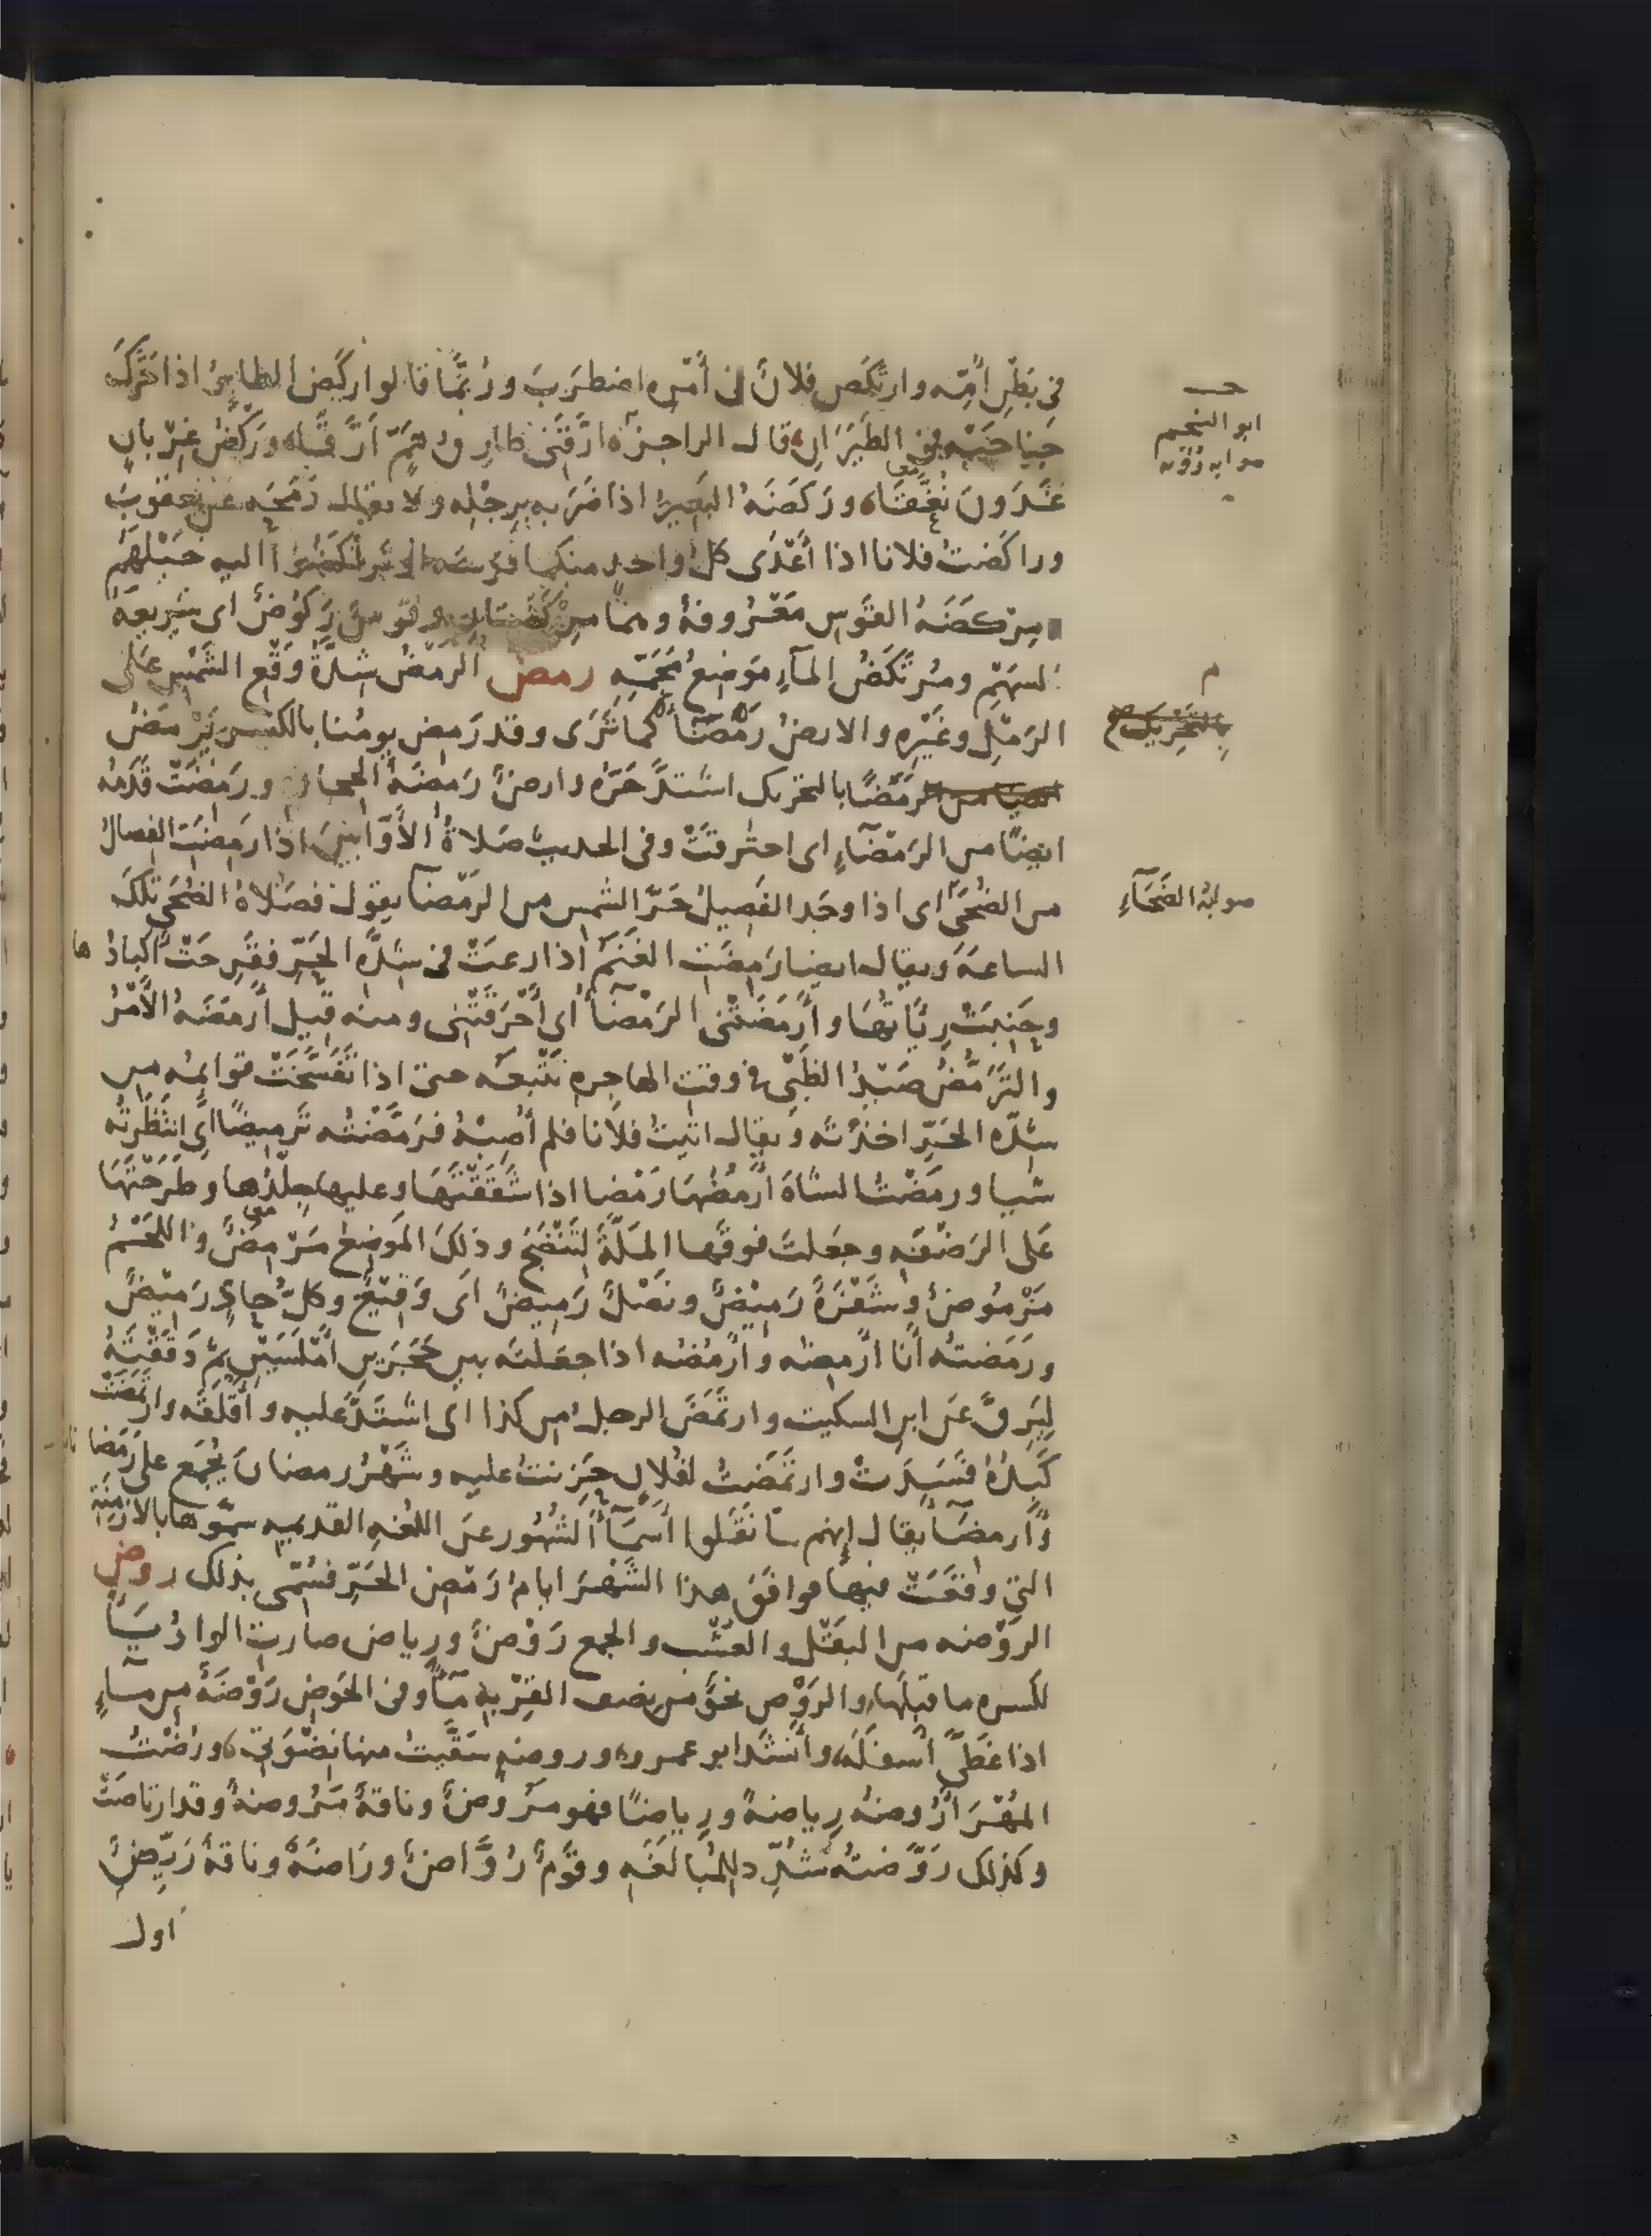 في بَطْنِ أُمِّه وارتَكَضَ فلانٌ في أَمْرِه اضطَرَبَ ورُبَّمَا قالوا ركَضَ الطايِرُ اذا حَرَّكَ
جَناحَيْه في الطَيَرَانِ قال الراجز ارَّقَنى طارِقُ هَمٍّ أَرَّقَا ورَكْضُ غِرْبانٍ
غَدَوْنَ نُغَّقَا ورَكَضَهُ البَعِيرُ اذا ضَرَبه برِجْلِه ولا يقال رَمَحَه عن يعقوبَ
وراكَضتُ فلانا اذا أَعْدَى كلُّ واحد منكما فرسَه
مِرْكَضَةُ القَوْسِ مَعْرُوفةٌ وهما مِرْكَضَتانِ وقَوْسٌ رَكُوضٌ اى سَريعةُ
السَهْمِ ومُرْتَكَضُ المآءِ مَوْضِعُ مَجَمِّهِ رمض الرمَضُ شِدَّةُ وَقْعِ الشَمْسِ عَلَى
الرَمْلِ وغَيْرِه والارضُ رَمْضَآءُ كما تَرَى وقد رَمِضَ يومُنا بالكسر يَرْمَضُ
رَمَضًا بالتحريك اشتدَّ حَرُّه وارضٌ رَمِضَةُ الحجارة ورَمِضَتْ قَدَمُه
ايضًا من الرَمْضَآءِ اى احترقَتْ وفى الحديث صَلاةُ الأَوَّابينَ اذا رَمِضَتِ الفِصالُ
من الضُحَى اى اذا وجَد الفَصِيلُ حَرَّ الشمس من الرَمْضآء يقول فصَلاةُ الضُحَى تلكَ
الساعةَ ويقال ايضا رَمِضَتِ الغَنَمُ اذا رعَتْ في شدَّةِ الحَرِّ فقَرِحَتْ أكبادُها
وحَبِنَتْ رِئَاتُهَا وأَرْمَضَتْنى الرَمْضآءُ أى أَحْرَقَتْنى ومنه قيل أَرمَضَهُ الأَمْرُ
والتَرَمُّضُ صَيْدُ الظَبْىِ في وقت الهاجِرةِ تَتْبَعُه حتى اذا تَفَسَّخَتْ قوائِمُه مِن
شِدّةِ الحَرِّ اخذْتَه ويقال اتيتُ فلانا فلم أُصِبْهُ فرَمَّضْتُه تَرْمِيضًا أى انْتَظَرْتُه
شيا ورمَضْتُ الشاةَ أَرْمِضُهَا رَمْضا اذا شَقَقْتَهَا وعليها جِلْدُها وطَرَحْتَهَا
عَلى الرَضْفَةِ وجَعَلتَ فوقَها المَلَّةَ لتَنْضَجَ وذلكَ المَوضِعُ مَرْمِضٌ واللَحْمُ
مَرْمُوضٌ وشَفْرَةٌ رَمِيْضٌ ونَصْلٌ رَمِيضٌ اى وَقِيْعٌ وكلُّ حادٍّ رَمِيْضٌ
ورَمَضتُه أَنا أَرْمِضُه وأَرْمُضُه اذا جعَلتَه بين حَجَرَيْنِ أَمْلَسَيْنِ ثمَّ دَقَقْتَهُ
لِيَرِقَّ عَن ابنِ السكيت وارتَمَضَ الرجلُ من كذا اى اشتَدَّ عليه وأَقلَقَه وارتَمَضَتْ
كَبِدُهُ فَسَدَتْ وارتَمَضتُ لفُلانٍ حَزِنتُ عليه وشَهْرُ رمضانَ يُجْمَع على رَمَضانات
وأَرمِضَآءَ يقال إنهم لمّا نَقَلوا أَسْمَآءَ الشُهُور عن اللغةِ القديمة سَمَّوها بالأَزْمِنَةِ
التي وقَعَتْ فيها فوافَقَ هذا الشَهْرُ ايامَ رَمَضِ الحَرِّ فسُمّى بذلك روض
الرَوْضه من البَقْل والعُشْب والجمع رَوْضٌ ورِياض صارت الواوُ يَاءً
لكسره ما قبلَها والرَوْض نحوٌ من نصف القِرْبة مَآءً وفى الحَوْض رَوْضَةٌ من مآءٍ
اذا غَطَّى أَسفَلَه وأَنشَدَ ابو عمرو وروضةٍ سَقَيْتُ منها نِضْوَتى ورُضْتُ
المُهْرَ أَرُوضُه رِياضةً ورِياضًا فهو مَرُوضٌ وناقةٌ مَرُوضةٌ وقد ارتاضَتْ
وكذلك رَوَّضتُه شُدِّد للمُبالَغَةِ وقَوْمٌ رُوَّاضٌ ورَاضَةٌ وناقةٌ رَيِّضٌ
اول
ابو النجم
صوابه رؤبة
م
بالتحريك صح
صوابُهُ الضَحَآءِ